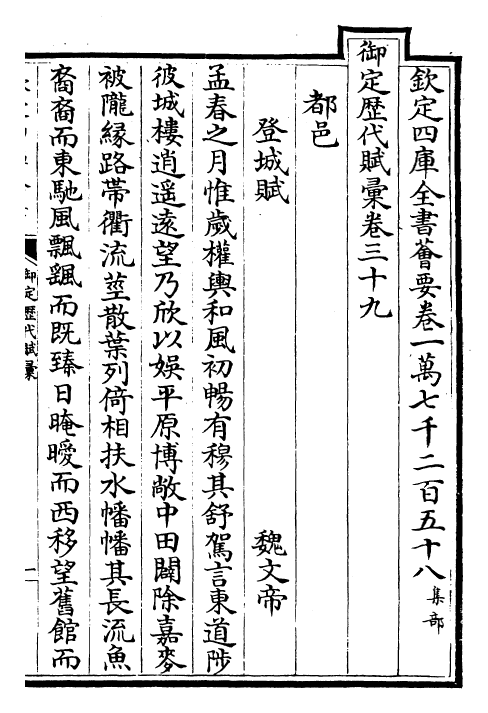 欽定四庫全書薈要卷一萬七千二百五十八集部
御定歴代賦彙卷三十九
都邑
登城賦　魏文帝
孟春之月惟歲權輿和風初暢有穆其舒駕言東道陟
彼城樓逍遥遠望乃欣以娛平原博敞中田闢除嘉麥
被隴緣路帶衢流莖散葉列倚相扶水幡幡其長流魚
裔裔而東馳風飄颻而既臻日晻曖而西移望舊館而
御定歴代賦彙
一